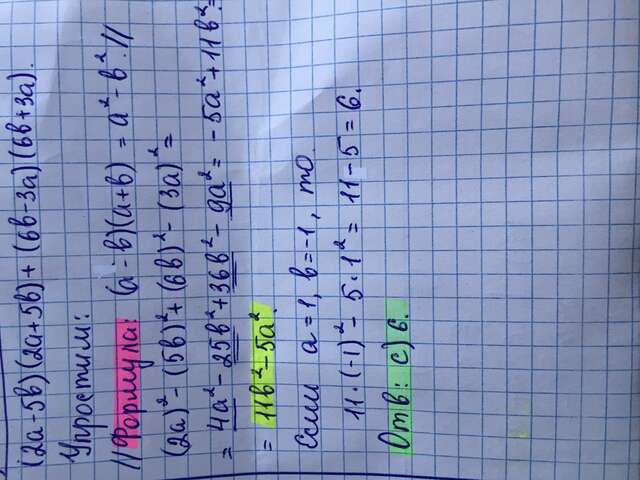 (2a-5b)(2a+5b)+(6b-3a)(6b+3a).
Упростим:
//Формула: (a-b)(a+b) = a²-b².//
(2a)²-(5b)²+(6b)²-(3a)²=
= 4a²-25b²+36b²-9a² = -5a²+11b²=
= 11b²-5a².
Если a=1, b=-1, то
11·(-1)²-5·1² = 11-5=6.
Отв: c) 6.